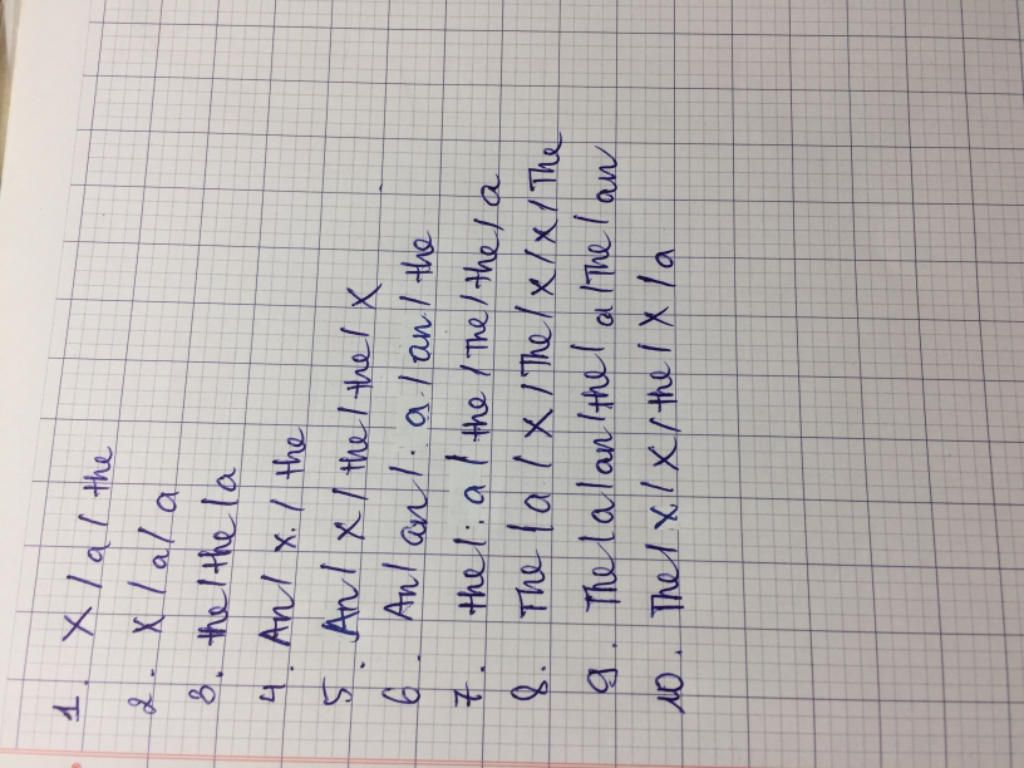 1. X / a / the
2. X / a / a
3. the / the / a
4. An / x. / the
5. An / x / the / the / X
6. An / an /. a / an / the
7. the /. a / the / The / the / a
8. The / a / X / The / x / x / The
9. The / a / an / the / a / The / an
10. The / x / x / the / X / a